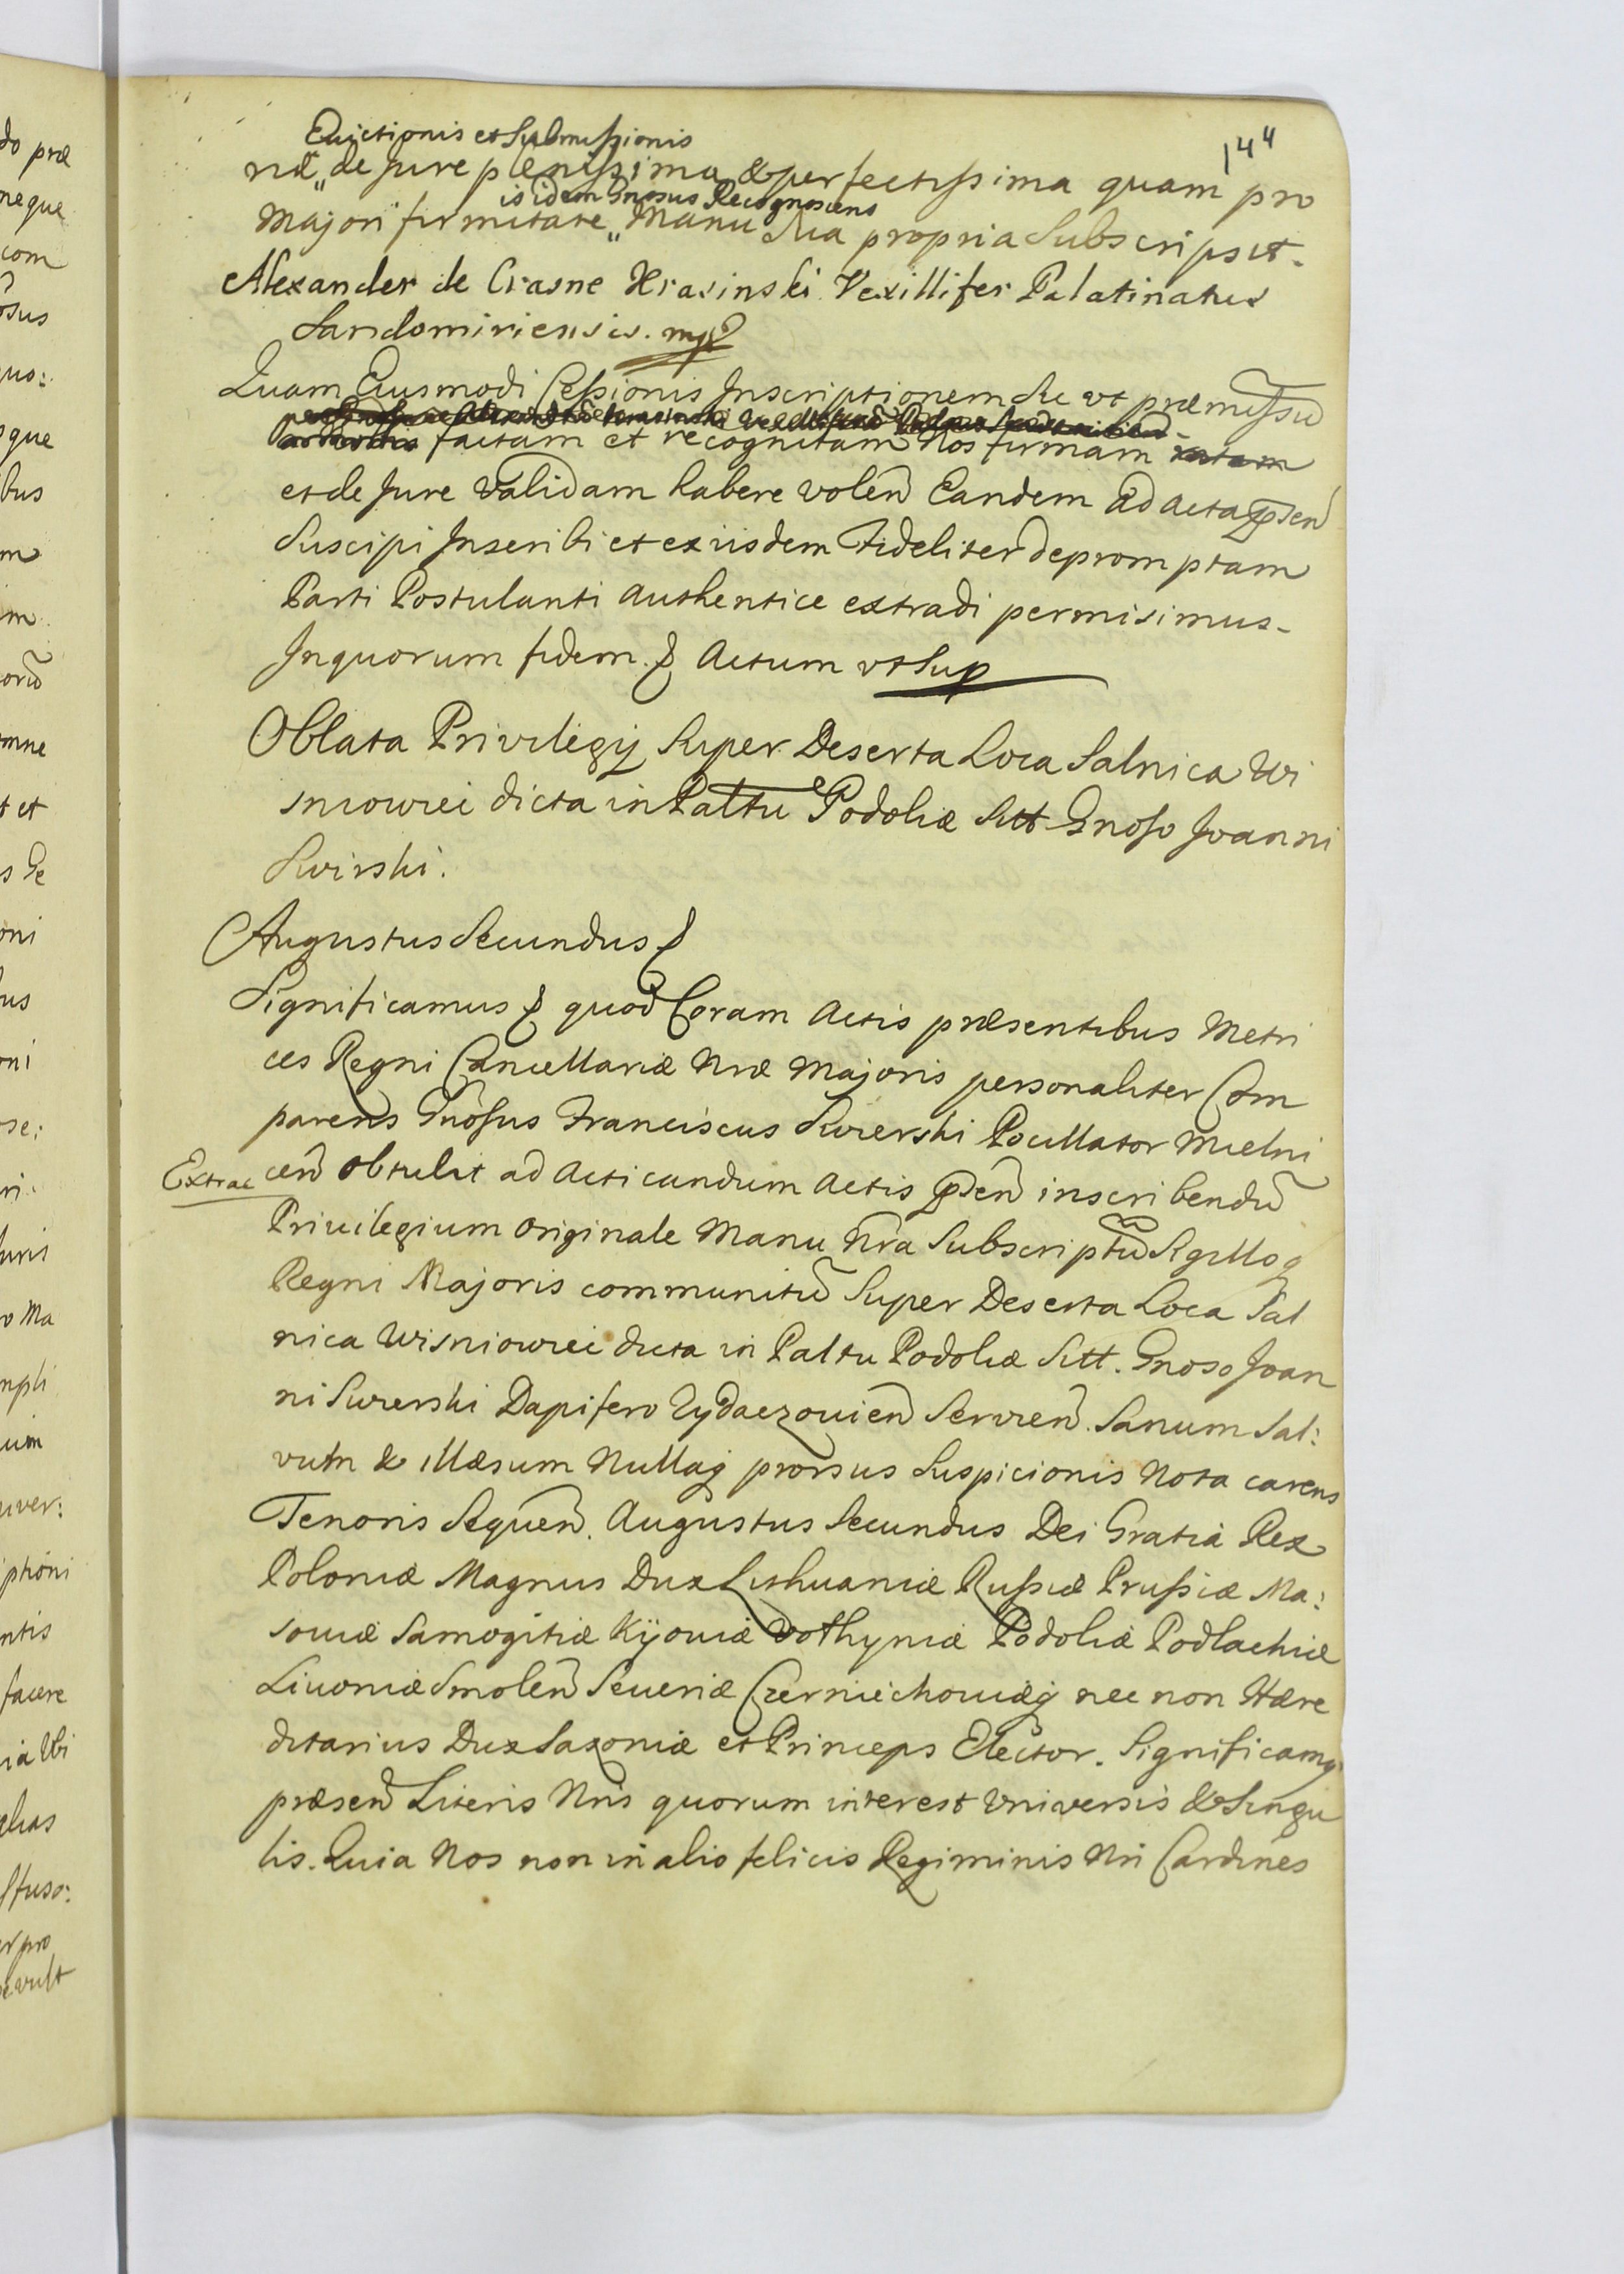 144
Evictionis et Submissionis
næ „ de Jure plenissima & perfectissima quam pro
is idem Gnosus Recognoscens
Majori firmitate „ Manu Sua propria Subscripsit.
Alexander de Crasne Krasinski Vexillifer Palatinatus
Sandomiriensis. mp
Quam Eiusmodi Cessionis Inscriptionem Sic vt præmissũ
factam et recognitam Nos firmam ratam
et de Jure Validam habere volen̄ Eandem ad acta pn̄sen̄
Suscipi Inscribi et ex iisdem Fideliter depromptam
Parti Postulanti Authentice extradi permisimus.
Inquorum fidem. & Actum vt Sup
Oblata Privilegij Super Deserta Loca Salnica Wi
sniowiec dicta in Paltu Podoliæ Sitt Gnoso Joanni
Swirski.
Augustus Secundus &
Significamus & quod Coram Actis præsentibus Metri
ces Regni Cancellariæ Nræ Majoris personaliter Com
parens Gnosus Franciscus Swierski Pocillator Mielni
Extrac
cen̄ obtulit ad Acticandum Actis pn̄sen̄ inscribendũ
Priuilegium Originale Manu Nra Subscriptũ Sigilloq
Regni Majoris communitũ Super Deserta Loca Sal
nica Wisniowiec dicta in Paltu Podoliæ Sitt. Gnoso Joan
ni Swierski Dapifero Zydaczouien̄ Servien̄. Sanum Sal:
vum & illæsum Nullaq prorsus Suspicionis Nota carens
Tenoris Sequen̄. Augustus Secundus Dei Gratia Rex
Poloniæ Magnus Dux Lithuaniæ Russiæ Prussiæ Ma:
souiæ Samogitiæ Kijouiæ Volhyniæ Podoliæ Podlachiæ
Liuoniæ Smolen̄ Seueriæ Czerniechouiæq nec non Hære
ditarius Dux Saxoniæ et Princeps Elector. Significamus
præsen̄ Literis Nris quorum interest Vniversis & Singu
lis. Quia Nos non in alio felicis Regiminis Nri Cardines